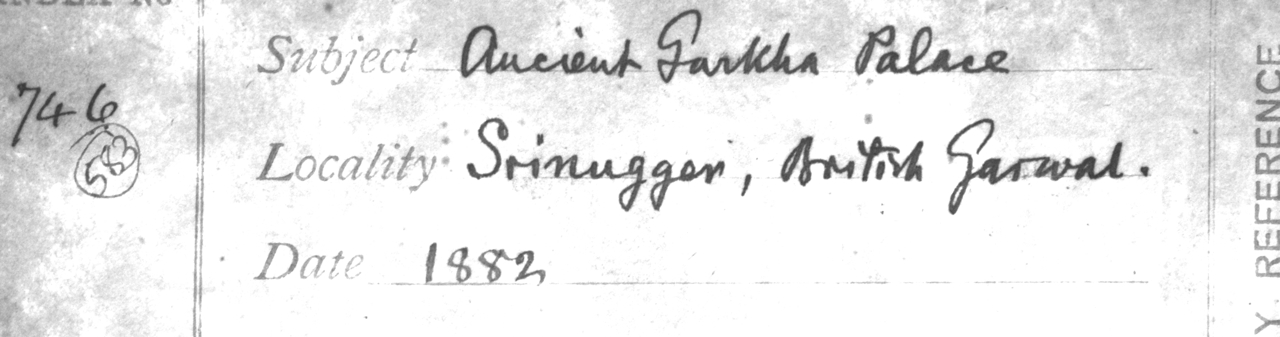 INDEX No
746
583
Subject Ancient Garkha Palace
Locality Srinugger, British Garwal.
Date 1882
Y. REFERENCE